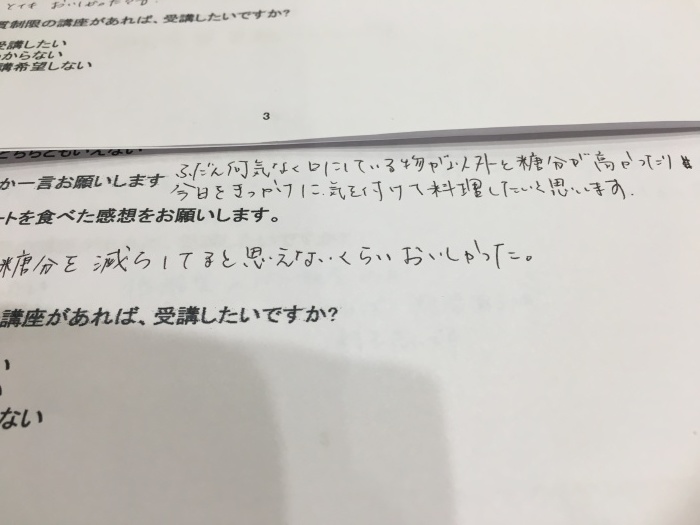 とても おいしかったです。
質制限の講座があれば、受講したいですか?
受講したい
からない
講希望しない
3
どちらともいえない
か一言お願いします ふだん何気なく口にしている物が以外と糖分が高かったり
今日をきっかけに気を付けて料理したいと思います.
ートを食べた感想をお願いします。
糖分を減らしてると思えないくらいおいしかった。
講座があれば、受講したいですか?
い
ない